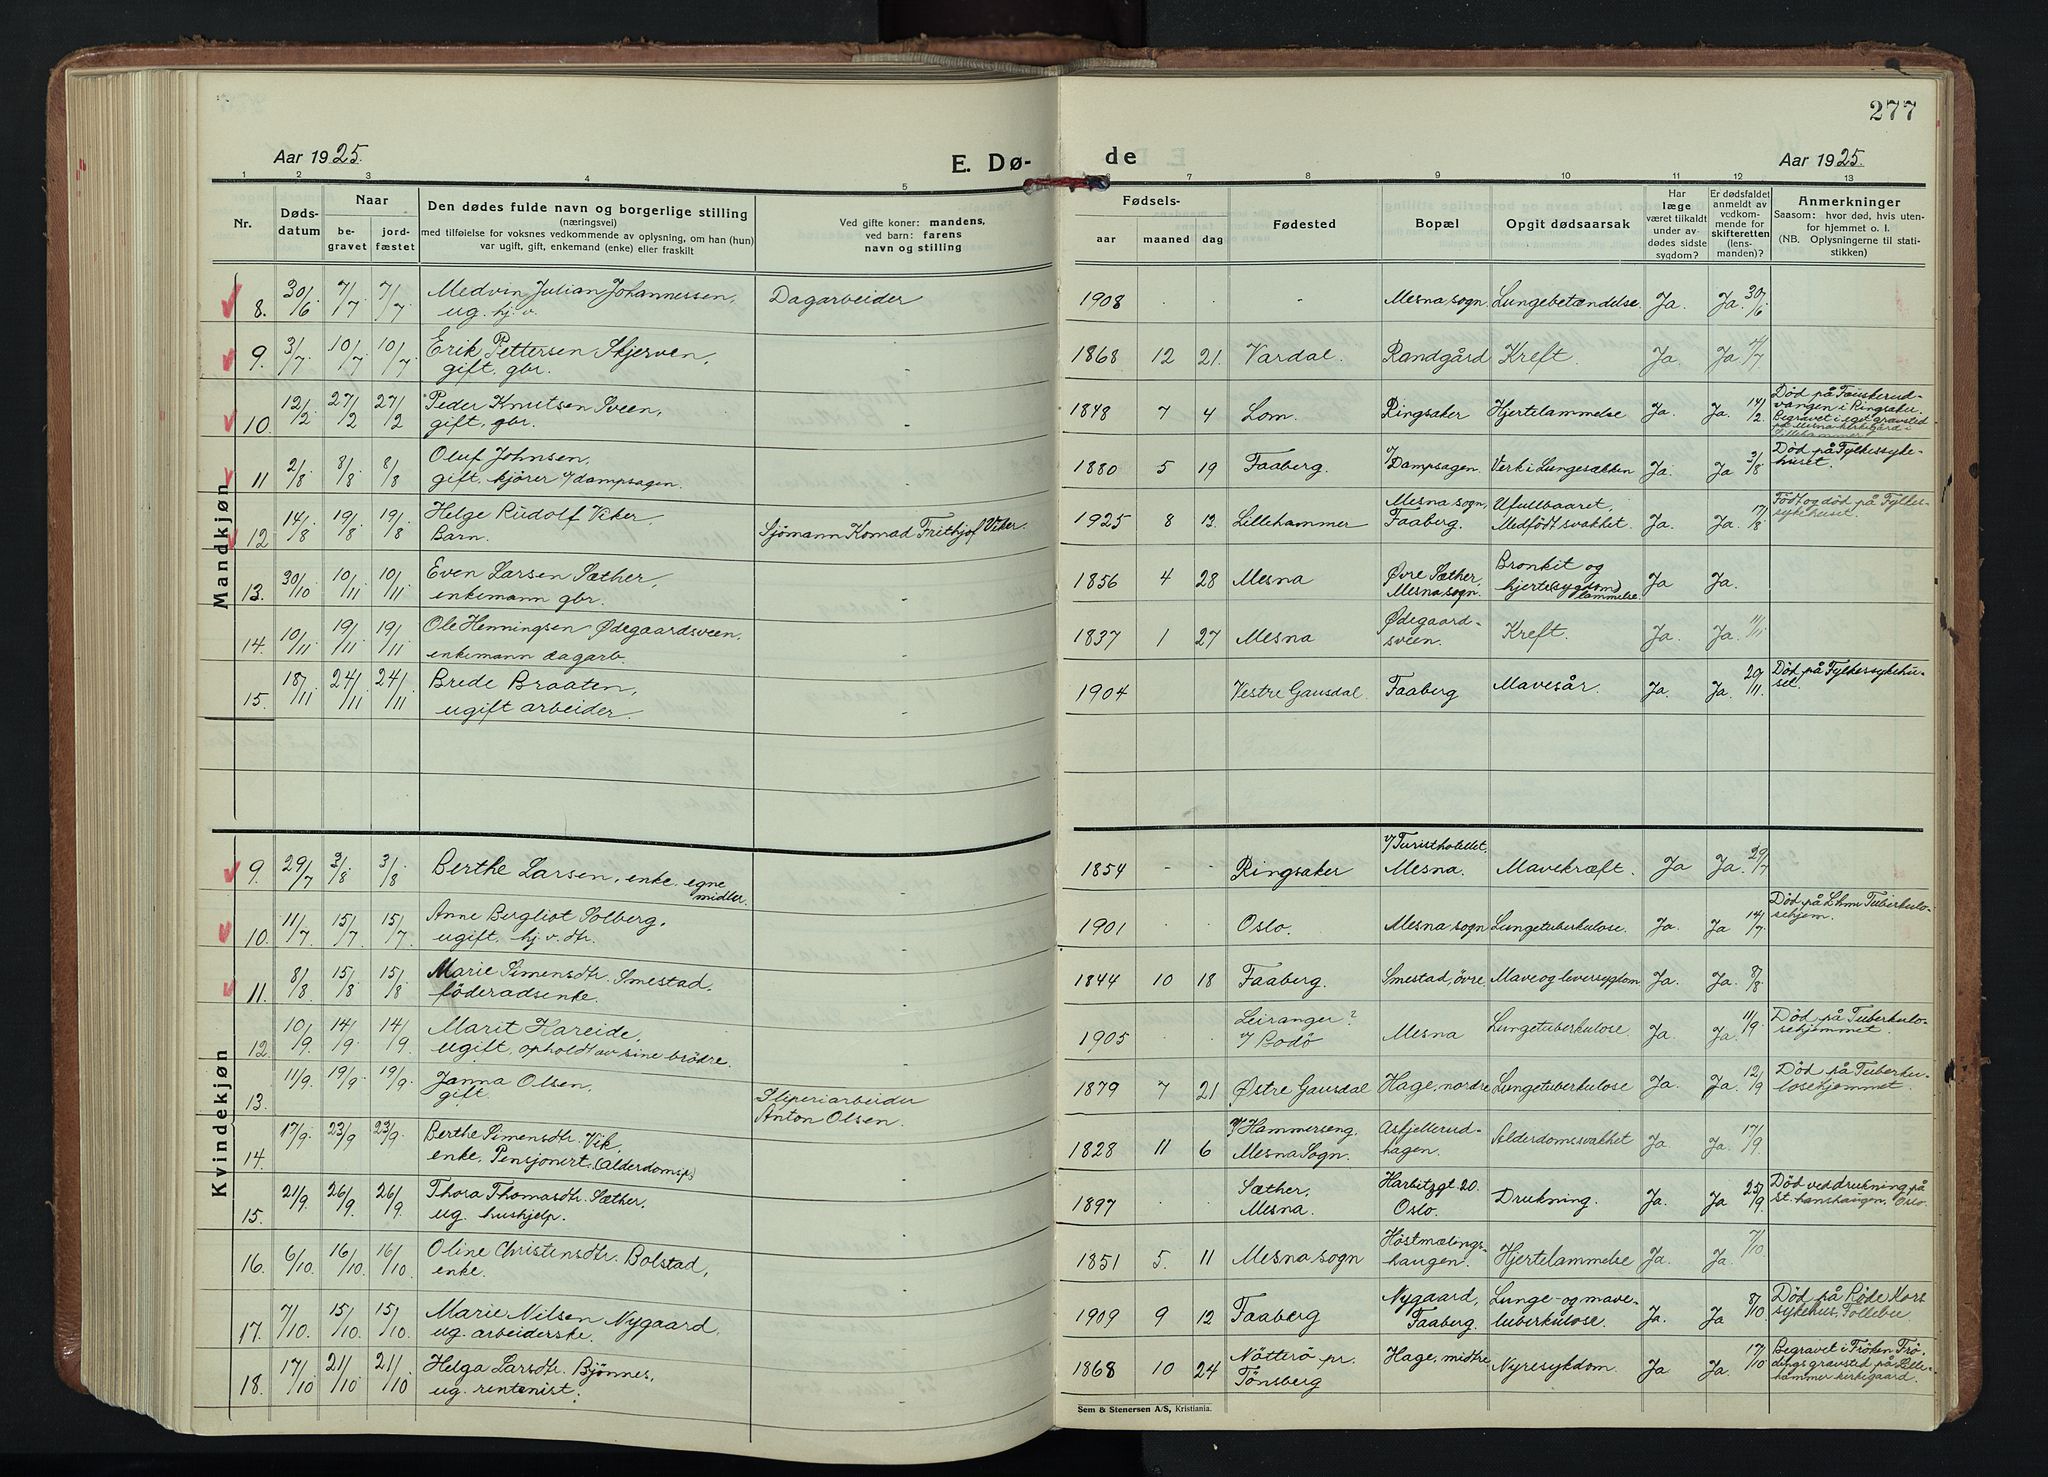 277
Aar 1925.
E. Dø-
de
Aar 1925.
1 2 3 4 5 6 7 8 9 10 11 12 13
Nr.
Døds-
datum
Naar
be-
gravet
jord-
fæstet
Den dødes fulde navn og borgerlige stilling
(næringsvei)
med tilføielse for voksnes vedkommende av oplysning, om han (hun)
var ugift, gift, enkemand (enke) eller fraskilt
Ved gifte koner: mandens,
ved barn: farens
navn og stilling
Fødsels-
aar maaned dag
Fødested
Bopæl
Opgit dødsaarsak
Har
læge
været tilkaldt
under av-
dødes sidste
sygdom?
Er dødsfaldet
anmeldt av
vedkom-
mende for
skifteretten
(lens-
manden)?
Anmerkninger
Saasom: hvor død, hvis uten-
for hjemmet o. l.
(NB. Oplysningerne til stati-
stikken)
Mandkjøn
8. 30/6 7/7 7/7 Medvin Julian Johannessen, ug. hj. v. Dagarbeider 1908 . . " Mesna sogn Lungebetændelse. Ja. Ja 30/6
9. 3/7 10/7 10/7 Erik Pettersen Skjerven, gift, gbr. 1868 12 21. Vardal. Randgård Kreft. Ja. Ja 7/7
10. 12/2 27/2 27/2 Peder Knutsen Sveen, gift, gbr. 1848 7 4 Lom. Ringsaker Hjertelammelse Ja. Ja. 14/2 Død på Fauskerud-
vangen i Ringsaker.
Begravet i eget gravsted
på Mesna kirkegård i
Lillehammer
11 2/8 8/8 8/8 Oluf Johnsen, gift, kjører v/dampsagen. 1880 5 19 Faaberg. v/ Dampsagen. Verk i Lungesækken Ja. Ja 3/8 Død på Fylkessyke-
huset.
12 14/8 19/8 19/8 Helge Rudolf Viker. Barn. Sjömann Konrad Frithjof Viker. 1925 8 13. Lillehammer Mesna sogn, Faaberg. Ufullbaaret, Medfødt svakhet. Ja. Ja. 17/8 Født og død på Fylkes-
sykehuset.
13. 30/10 10/11 10/11 Even Larsen Sæther, enkemann gbr. 1856 4 28 Mesna Øvre Sæther, Mesna sogn. Bronkit og hjerte(sygdom) lammelse. Ja Ja.
14. 10/11 19/11 19/11 Ole Henningsen Ødegaardsveen, enkemann dagarb. 1837 1 27 Mesna Ødegaard-
sveen. Kreft. Ja. Ja. 11/11
15. 18/11 24/11 24/11 Brede Braaten, ugift arbeider. 1904 Vestre Gausdal. Faaberg Mavesår. Ja. Ja. 20/11. Død på Fylkessykehu-
set.
Kvindekjøn
9. 29/7 3/8 3/8 Berthe Larsen, enke, egne midler. 1854 - - Ringsaker v/Turisthotellet, Mesna. Mavekræft. Ja Ja. 29/7
10. 11/7 15/7 15/7 Anne Bergliot Solberg, ugift, hj. v. dtr. 1901 . . Oslo. Mesna sogn Lungetuberkulose. Ja. Ja 14/7. Død på Lhmr Tuberkulo-
sehjem.
11. 8/8 15/8 15/8 Marie Simensdtr. Smestad. föderadsenke. 1844 10 18 Faaberg. Smestad, övre Mave og leversygdom Ja. Ja. 8/8
12 10/9 14/9 14/9 Marit Hareide, ugift, opholdt av sine brödre. 1905 . . Leiranger? v/ Bodö Mesna Lungetuberkulose Ja. Ja. 11/9. Död på Tuberkulo-
sehjemmet.
13. 11/9. 19/9. 19/9. Janna Olsen, gift. Sliperiarbeider Anton Olsen. 1879 7 21 Østre Gausdal Hage, nordre Lungetuberkulose Ja. Ja. 12/9 Död på Tuberku-
losehjemmet.
14. 17/9. 23/9 23/9. Berthe Simensdtr. Vik, enke, Pensjonert. (Alderdomsp.) 1828 11 6 v/Hammerseng. Mesna Sogn. Askjellerud-
hagen. Alderdomsvakhet Ja. Ja. 17/9.
15. 21/9. 26/9 26/9. Thora Thomasdtr. Sæther, ug. hushjelp. 1897 . Sæther, Mesna. Harbitzgt 20. Oslo. Drukning. Ja. Ja 25/9. Död ved drukning på
St. hanshaugen, Oslo.
16. 6/10. 16/10. 16/10. Oline Christensdtr. Bolstad, enke. 1851 5. 11 Mesna sogn Höstmælings-
haugen. Hjertelammelse Ja. Ja. 7/10.
17. 7/10. 15/10 15/10. Marie Nilsen Nygaard, ug. arbeiderske. 1909 9 12 Faaberg Nygaard, Faaberg. Lunge- og mave-
tuberkulose. Ja. Ja 8/10 Död på Röde Kors
sykehus, Follebu.
18. 17/10 21/10 21/10 Helga Larsdtr. Bjönnes, ug. rentenist. 1868 10 24 Nötterö pr. Tönsberg Hage, midtre Nyresykdom. Ja Ja. 17/10 Begravet i Fröken Frö-
dings gravsted på Lille-
hammer kirkegaard.
Sem & Stenersen A/S, Kristiania.